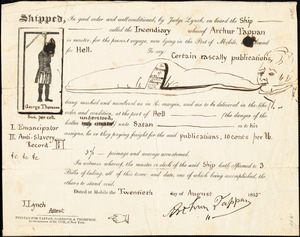 Shipped,
in good order and wellconditioned, by Judge Lynch, on board the Ship
called the Incendiary whereof Arthur Tappan
is master, for the present voyage, now lying in the Port of Mobile, bound
for Hell. To say:
Certain rascally publications,
George Thompson
I. Emancipator
II. Anti-Slavery
Record
&c &c &c
being marked and numbered as in the margin, and are to be delivered in the like
order and condition, at the port of Hell (the danger of the
understood,
unto Satan or to his
assigns, he or they paying freight for the said publications, 10 cents per lb.
primage and average accustomed.
In witness whereof, the master of the said Ship hath affirmed 3
Bills of lading, all of this tenor and date, one of which being accomplished, the
others to stand void.
Dated at Mobile the Twentieth day of August 1835
J. Lynch
Arthur Tappan